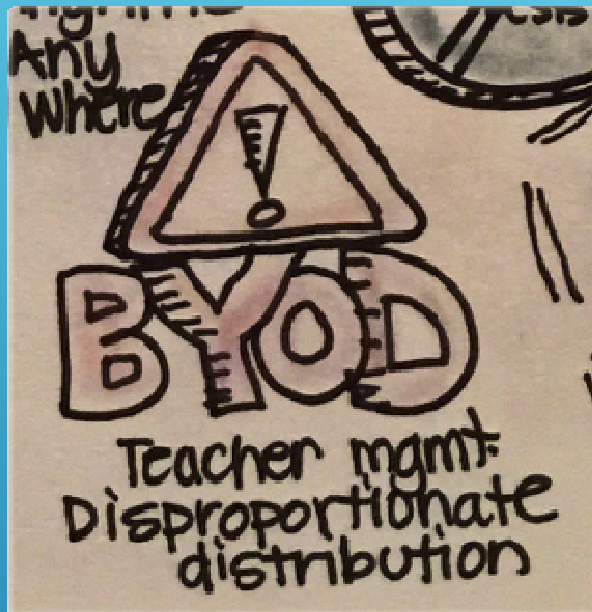 Any
Where
!
BYOD
Teacher mgmt.
Disproportionate
distribution